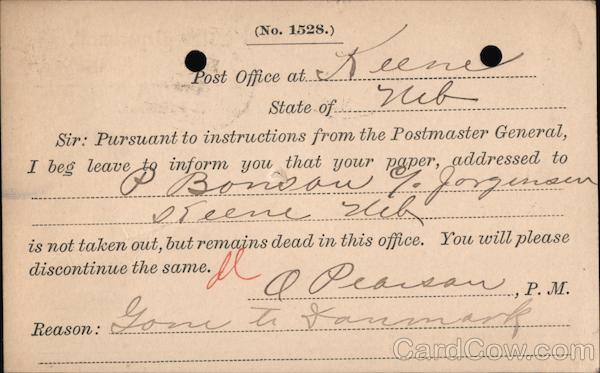 (No. 1528.)
Post Office at Keene
State of Neb
Sir: Pursuant to instructions from the Postmaster General,
I beg leave to inform you that your paper, addressed to
P Bonson c/o Jorgensen
Keene Neb
is not taken out, but remains dead in this office. You will please
discontinue the same.
O Pearson, P. M.
Reason: Gone to Danmark
CardCow.com